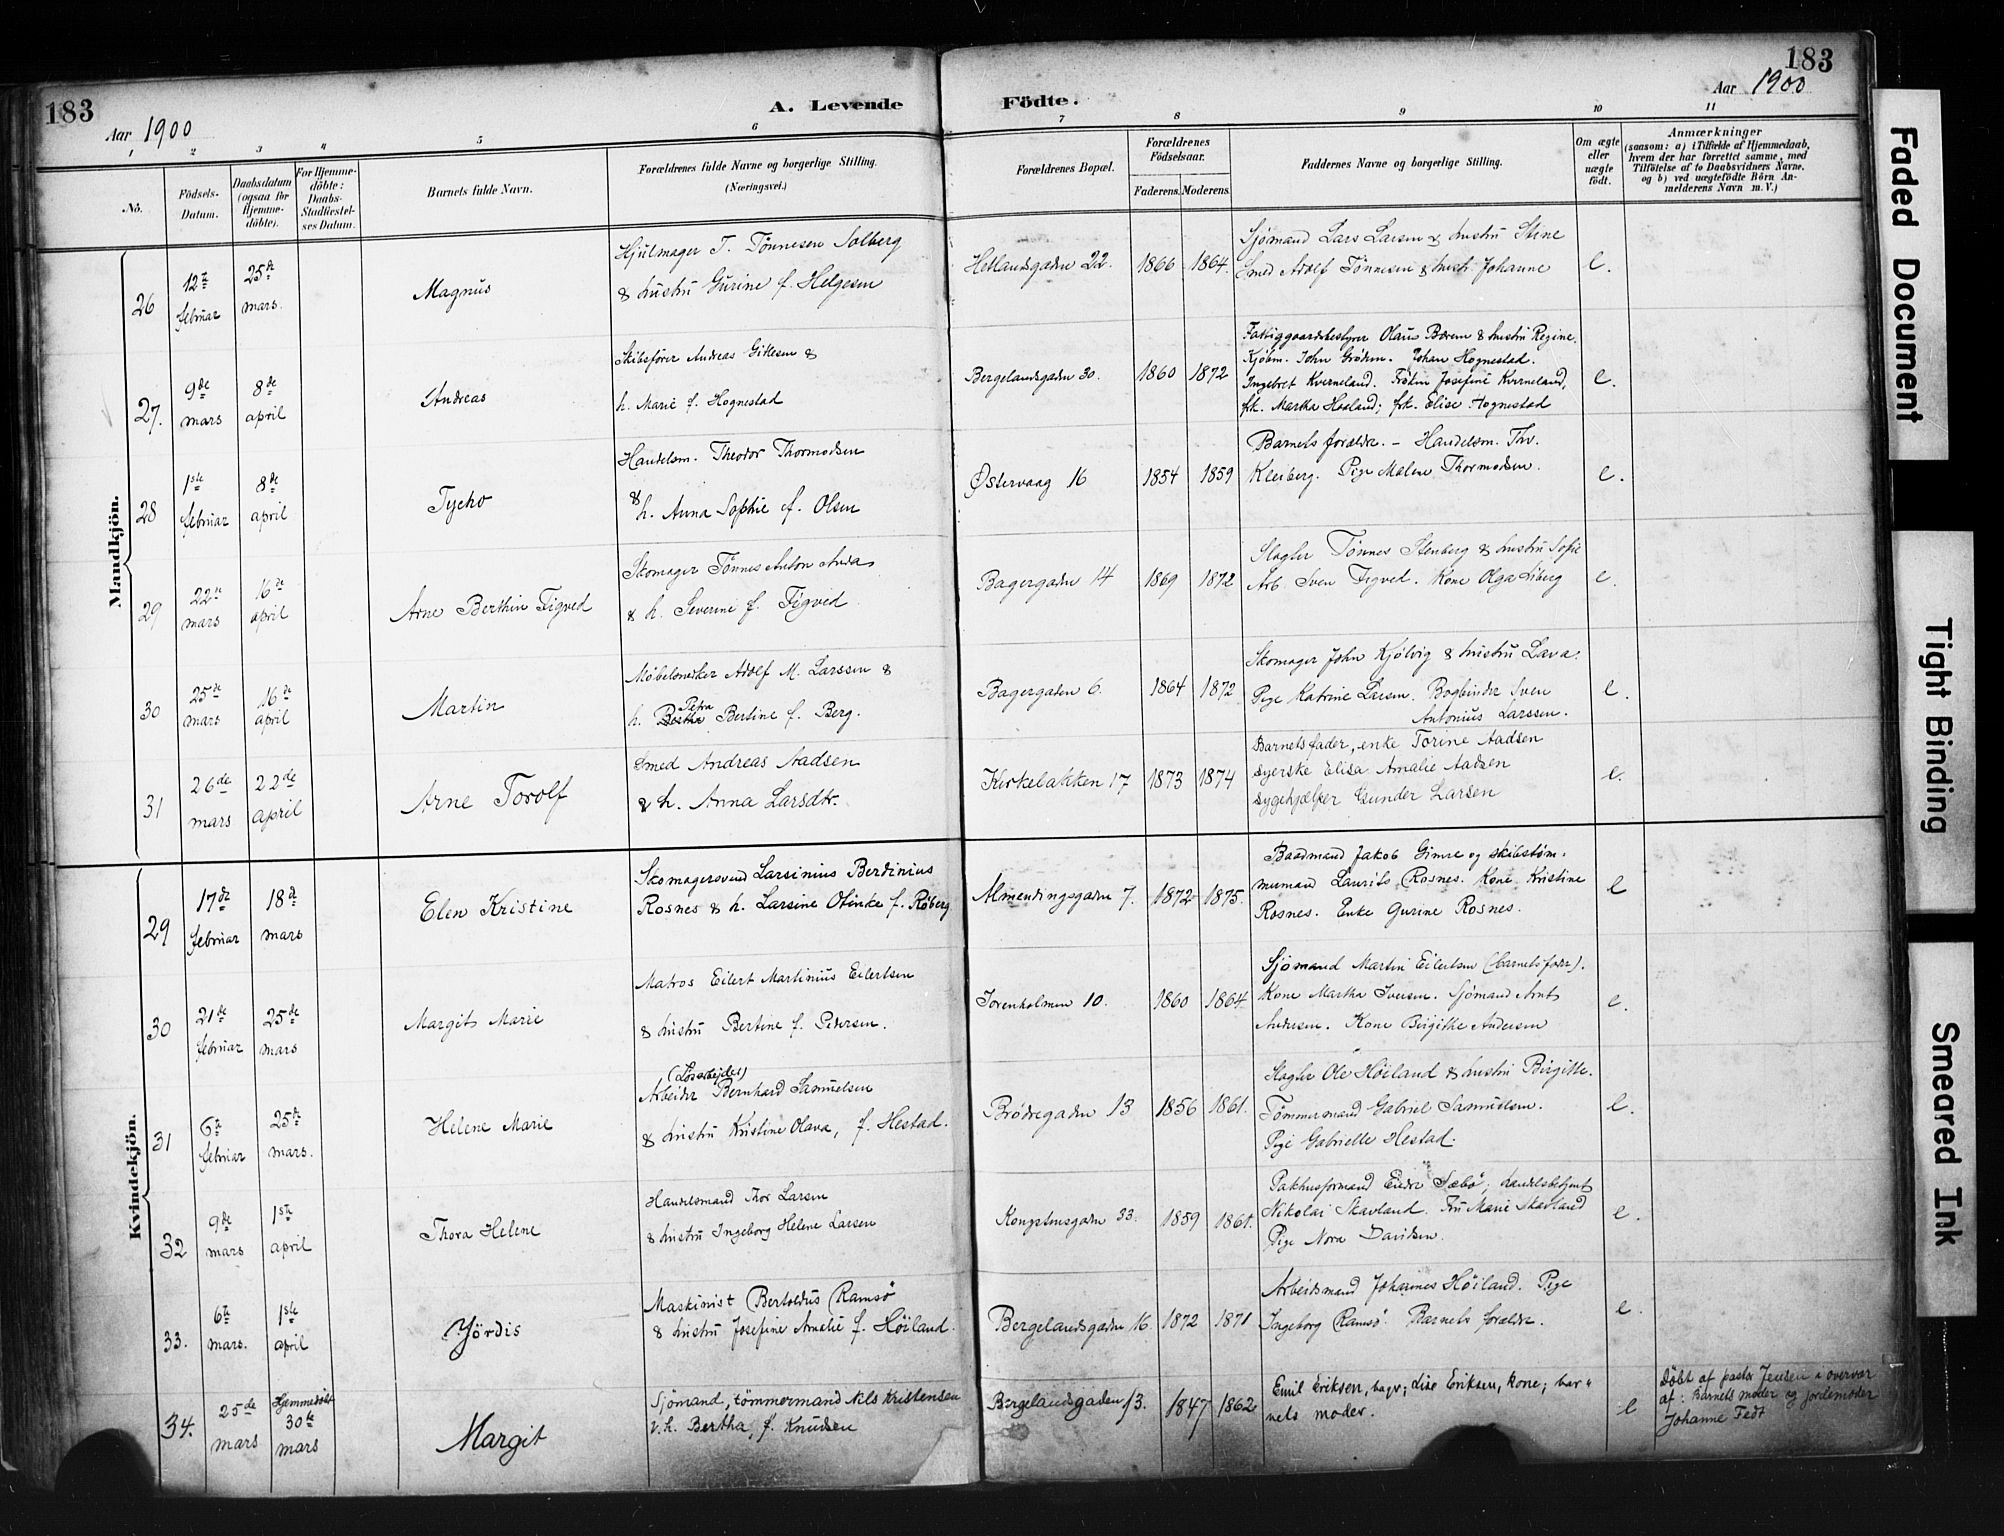 183
183
A. Levende
Födte.
Aar 1900
Aar 1900
1 2 3 4 5 6
7 8 9 10 11
No.
Födsels-
Datum.
Daabsdatum
(ogsaa for
Hjemme-
döbte).
For Hjemme-
döbte:
Daabs-
Stadfæstel-
ses Datum.
Barnets fulde Navn.
Forældrenes fulde Navne og borgerlige Stilling.
(Næringsvei.)
Forældrenes Bopæl.
Forældrenes
Födselsaar.
Faderens. Moderens.
Faddernes Navne og borgerlige Stilling.
Om ægte
eller
uægte
födt.
Anmærkninger
(saasom: a) i Tilfælde af Hjemmedaab,
hvem der har forrettet samme, med
Tilföielse af to Daabsvidners Navne,
og b) ved uægtefödte Börn An-
melderens Navn m. V.)
Mandkjön.
26
12te
februar
25de
mars.
Magnus
Hjulmager T. Tönnesen Solberg
& hustru Gurine f. Helgesen
Hetlandsgaden 22. 1866 1864.
Sjömand Lars Larsen & hustru Stine
Smed Adolf Tönnesen & hustr. Johanne
e.
27.
9de
mars
8de
april
Andreas
Skibsförer Andreas Gittesen &
h. Marie f. Hognestad
Bergelandsgaden 30. 1860 1872
Fattiggaardsbestyrer Olaus Bærem & hustru Regine.
Kjöbm. John Grödem. Johan Hognestad.
Ingebret Kverneland. Fröken Josefine Kverneland,
frk. Martha Haaland; frk. Elise Hognestad
e.
28
1ste
februar
8de
april
Tycho
Handelsm. Theodor Thormodsen
& h. Anna Sophie f. Olsen
Østervaag 16 1854 1859
Barnets forældre. - Handelsm. Thv.
Kleiberg. Pige Malene Thormodsen.
e.
29
22de
mars
16de
april
Arne Berthin Tigved
Skomager Tönnes Anton Anda
& h. Severine f. Tigved
Bagergaden 14 1869 1872
Slagter Tönnes Stenberg & hustru Sofie
Arb. Sven Tigved. Kone Olga Siberg
e.
30
25de
mars
16de
april
Martin
Möbelsnekker Adolf M. Larssen &
Petra
h. Bertha Bertine f. Berg.
Bagergaden 6. 1864 1872
Skomager John Kjölvig & hustru Lava.
Pige Katrine Larsen. Bogbinder Sven
Antonius Larssen.
e.
31
26de
mars
22de
april
Arne Torolf
Smed Andreas Aadsen
& h. Anna Larsdtr.
Kirkebakken 17 1873 1874
Barnets fader, enke Torine Aadsen
syerske Elisa Amalie Aadsen
sygehjælper Gunder Larsen
e.
Kvindekjön.
29
17de
februar
18de
mars
Elen Kristine
Skomagersvend Larsinius Berdinius
Rosnes & h. Larsine Olinke f. Röberg
Almendingsgaden 7. 1872 1875.
Baadmand Jakob Gimre og skibstöm-
mermand Laurits Rosnes. Kone Kristine
Rosnes. Enke Gurine Rosnes.
e
30
21de
februar
25de
mars
Margit Marie
Matros Eilert Martinius Eilertsen
& hustru Bertine f. Petersen.
Jorenholmen 10. 1860 1864
Sjömand Martin Eilertsen (barnets fader).
Kone Martha Iversen. Sjömand Arnt
Andersen. Kone Birgitte Andersen
e.
31
6te
februar
25de
mars.
Helene Marie
(Lösarbejder)
Arbeider Bernhard Samuelsen
& hustru Kristine Olava, f. Hestad.
Brödregaden 13 1856 1861.
Slagter Ole Höiland & hustru Birgitte.
Tömmermand Gabriel Samuelsen.
Pige Gabrielle Hestad.
e.
32
9de
mars
1ste
april
Thora Helene
Handelsmand Thor Larsen
& hustru Ingeborg Helene Larsen
Kongstensgaden 33. 1859 1861.
Pakhusformand Eidre Sæbö; handelsbetjent
Nikolai Skavland. Fru Marie Skavland
Pige Nora Davidsen.
e.
33.
6te
mars.
1ste
april
Hjördis
Maskinist Bertoldus Ramsö
& hustru Josefine Amalie f. Höiland.
Bergelandsgaden 16. 1872 1871
Arbeidsmand Johannes Höiland. Pige
Ingeborg Ramsö. Barnets forældre.
e.
34.
25de
mars
Hjemmedöbt
30te
mars
Margit
Sjömand, tömmermand Nils Kristensen
v. h. Bertha, f. Knudsen
Bergelandsgaden 13. 1847 1862
Emil Eriksen, bager; Lise Eriksen, kone; bar-
nets moder.
e
Döbt af pastor Jensen i overvær
af: Barnets moder og jordemoder
Johanne Fedt
Faded Document
Tight Binding
Smeared Ink